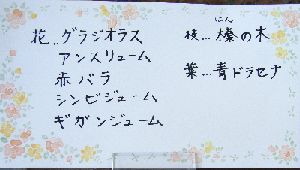 花…グラジオラス
アンスリューム
赤バラ
シンビジューム
ギガンジューム
はん
枝…榛の木
葉…青ドラセナ